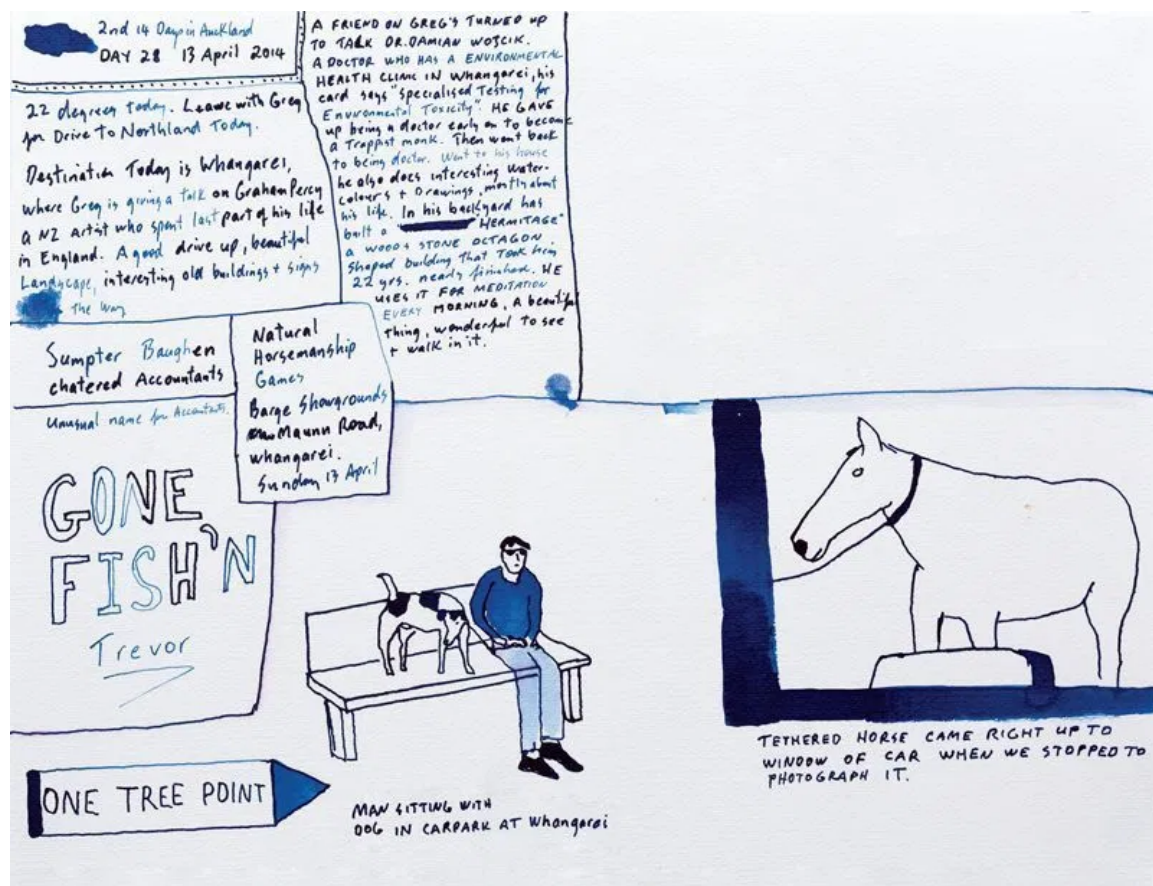 2nd 14 Days in Auckland
DAY 28 13 April 2014
22 degrees today. Leave with Greg
for Drive to Northland Today.
Destination Today is Whangarei,
where Greg is giving a talk on Graham Percy
a NZ Artist who spent last part of his life
in England. A good drive up, beautiful
Landscape, interesting old buildings + signs
the way
A FRIEND ON GREG'S TURNED UP
TO TALK DR. DAMIAN WOJCIK.
A DOCTOR WHO HAS A ENVIRONMENTAL
HEALTH CLINIC IN Whangarei, his
card says "Specialised Testing for
Environmental Toxicity". HE GAVE
up being a doctor early on to become
a Trappist monk. Then went back
to being doctor. Went to his house
he also does interesting water-
colours + Drawings, mostly about
his life. In his backyard has
built a "HERMITAGE"
a WOOD + STONE OCTAGON
Shaped building that Took him
22 yrs. nearly finished. HE
USES IT FOR MEDITATION
EVERY MORNING, A beautiful
Thing, wonderful to see
+ walk in it.
Sumpter Baughen
chatered Accountants
Unusual name for Accountants.
Natural
Horsemanship
Games
Barge Showgrounds
Maunn Road,
whangarei.
Sunday 13 April
GONE
FISH'N
Trevor
ONE TREE POINT
MAN SITTING WITH
DOG IN CARPARK AT Whangarei
TETHERED HORSE CAME RIGHT UP TO
WINDOW OF CAR WHEN WE STOPPED TO
PHOTOGRAPH IT.